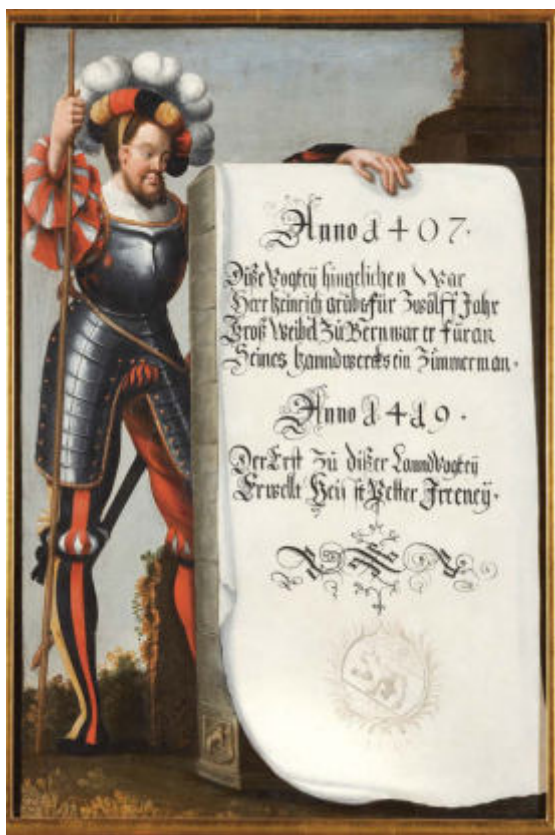 Anno 1407.
Diße Vogteÿ hingelichen War
Herr Heinrich grùb für Zwölff Jahr
Groß Weibel Zù Bern war er füran
Seines hanndwercks ein Zimmerman.
Anno 1419.
Der Erst Zù dißer Lanndvogteÿ
Erwellt Petter Irreneÿ.